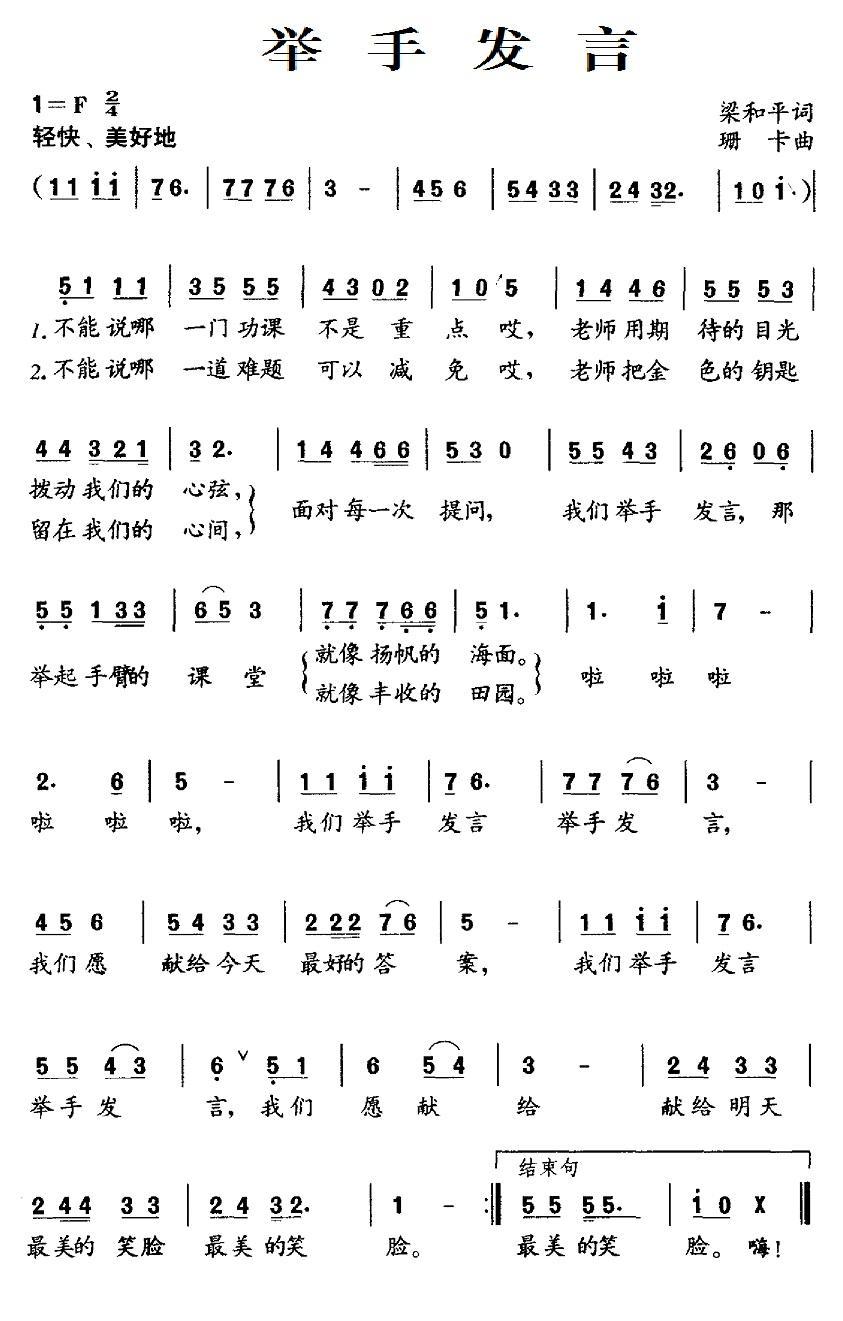 举手发言
1=F 2/4
梁和平词
轻快、美好地
珊 卡曲
(11 i̇i̇ | 76. | 77 76 | 3 - | 45 6 | 54 33 | 24 32. | 10 i̇.)|
5̣1 11 | 35 55 | 43 02 | 10 5 | 14 46 | 55 53 |
1.不能说哪 一门功课 不是 重 点 哎， 老师用期 待的目光
2.不能说哪 一道难题 可以 减 免 哎， 老师把金 色的钥匙
44 321 | 32. | 14 466 | 53 0 | 55 43 | 26̣ 06̣ |
拨动我们的 心弦，
面对每一次 提问， 我们举手 发言，那
留在我们的 心间，
5̣5̣ 133 | 65 3 | 7̣7̣ 7̣6̣6̣ | 5̣1. | 1. i̇ | 7 - |
就像扬帆的 海面。
举起手臂的 课 堂 啦 啦 啦
就像丰收的 田园。
2. 6 | 5 - | 11 i̇i̇ | 76. | 77 76 | 3 - |
啦 啦 啦， 我们举手 发言 举手发 言，
45 6 | 54 33 | 222 76 | 5 - | 11 i̇i̇ | 76. |
我们愿 献给今天 最好的答 案， 我们举手 发言
55 43 | 6̣ ∨ 5̣1 | 6 54 | 3 - | 24 33 |
举手发 言，我们 愿献 给 献给明天
结束句
244 33 | 24 32. | 1 - :‖ 55 55. | i̇0 X ‖
最美的 笑脸 最美的笑 脸。 最美的笑 脸。嗨！